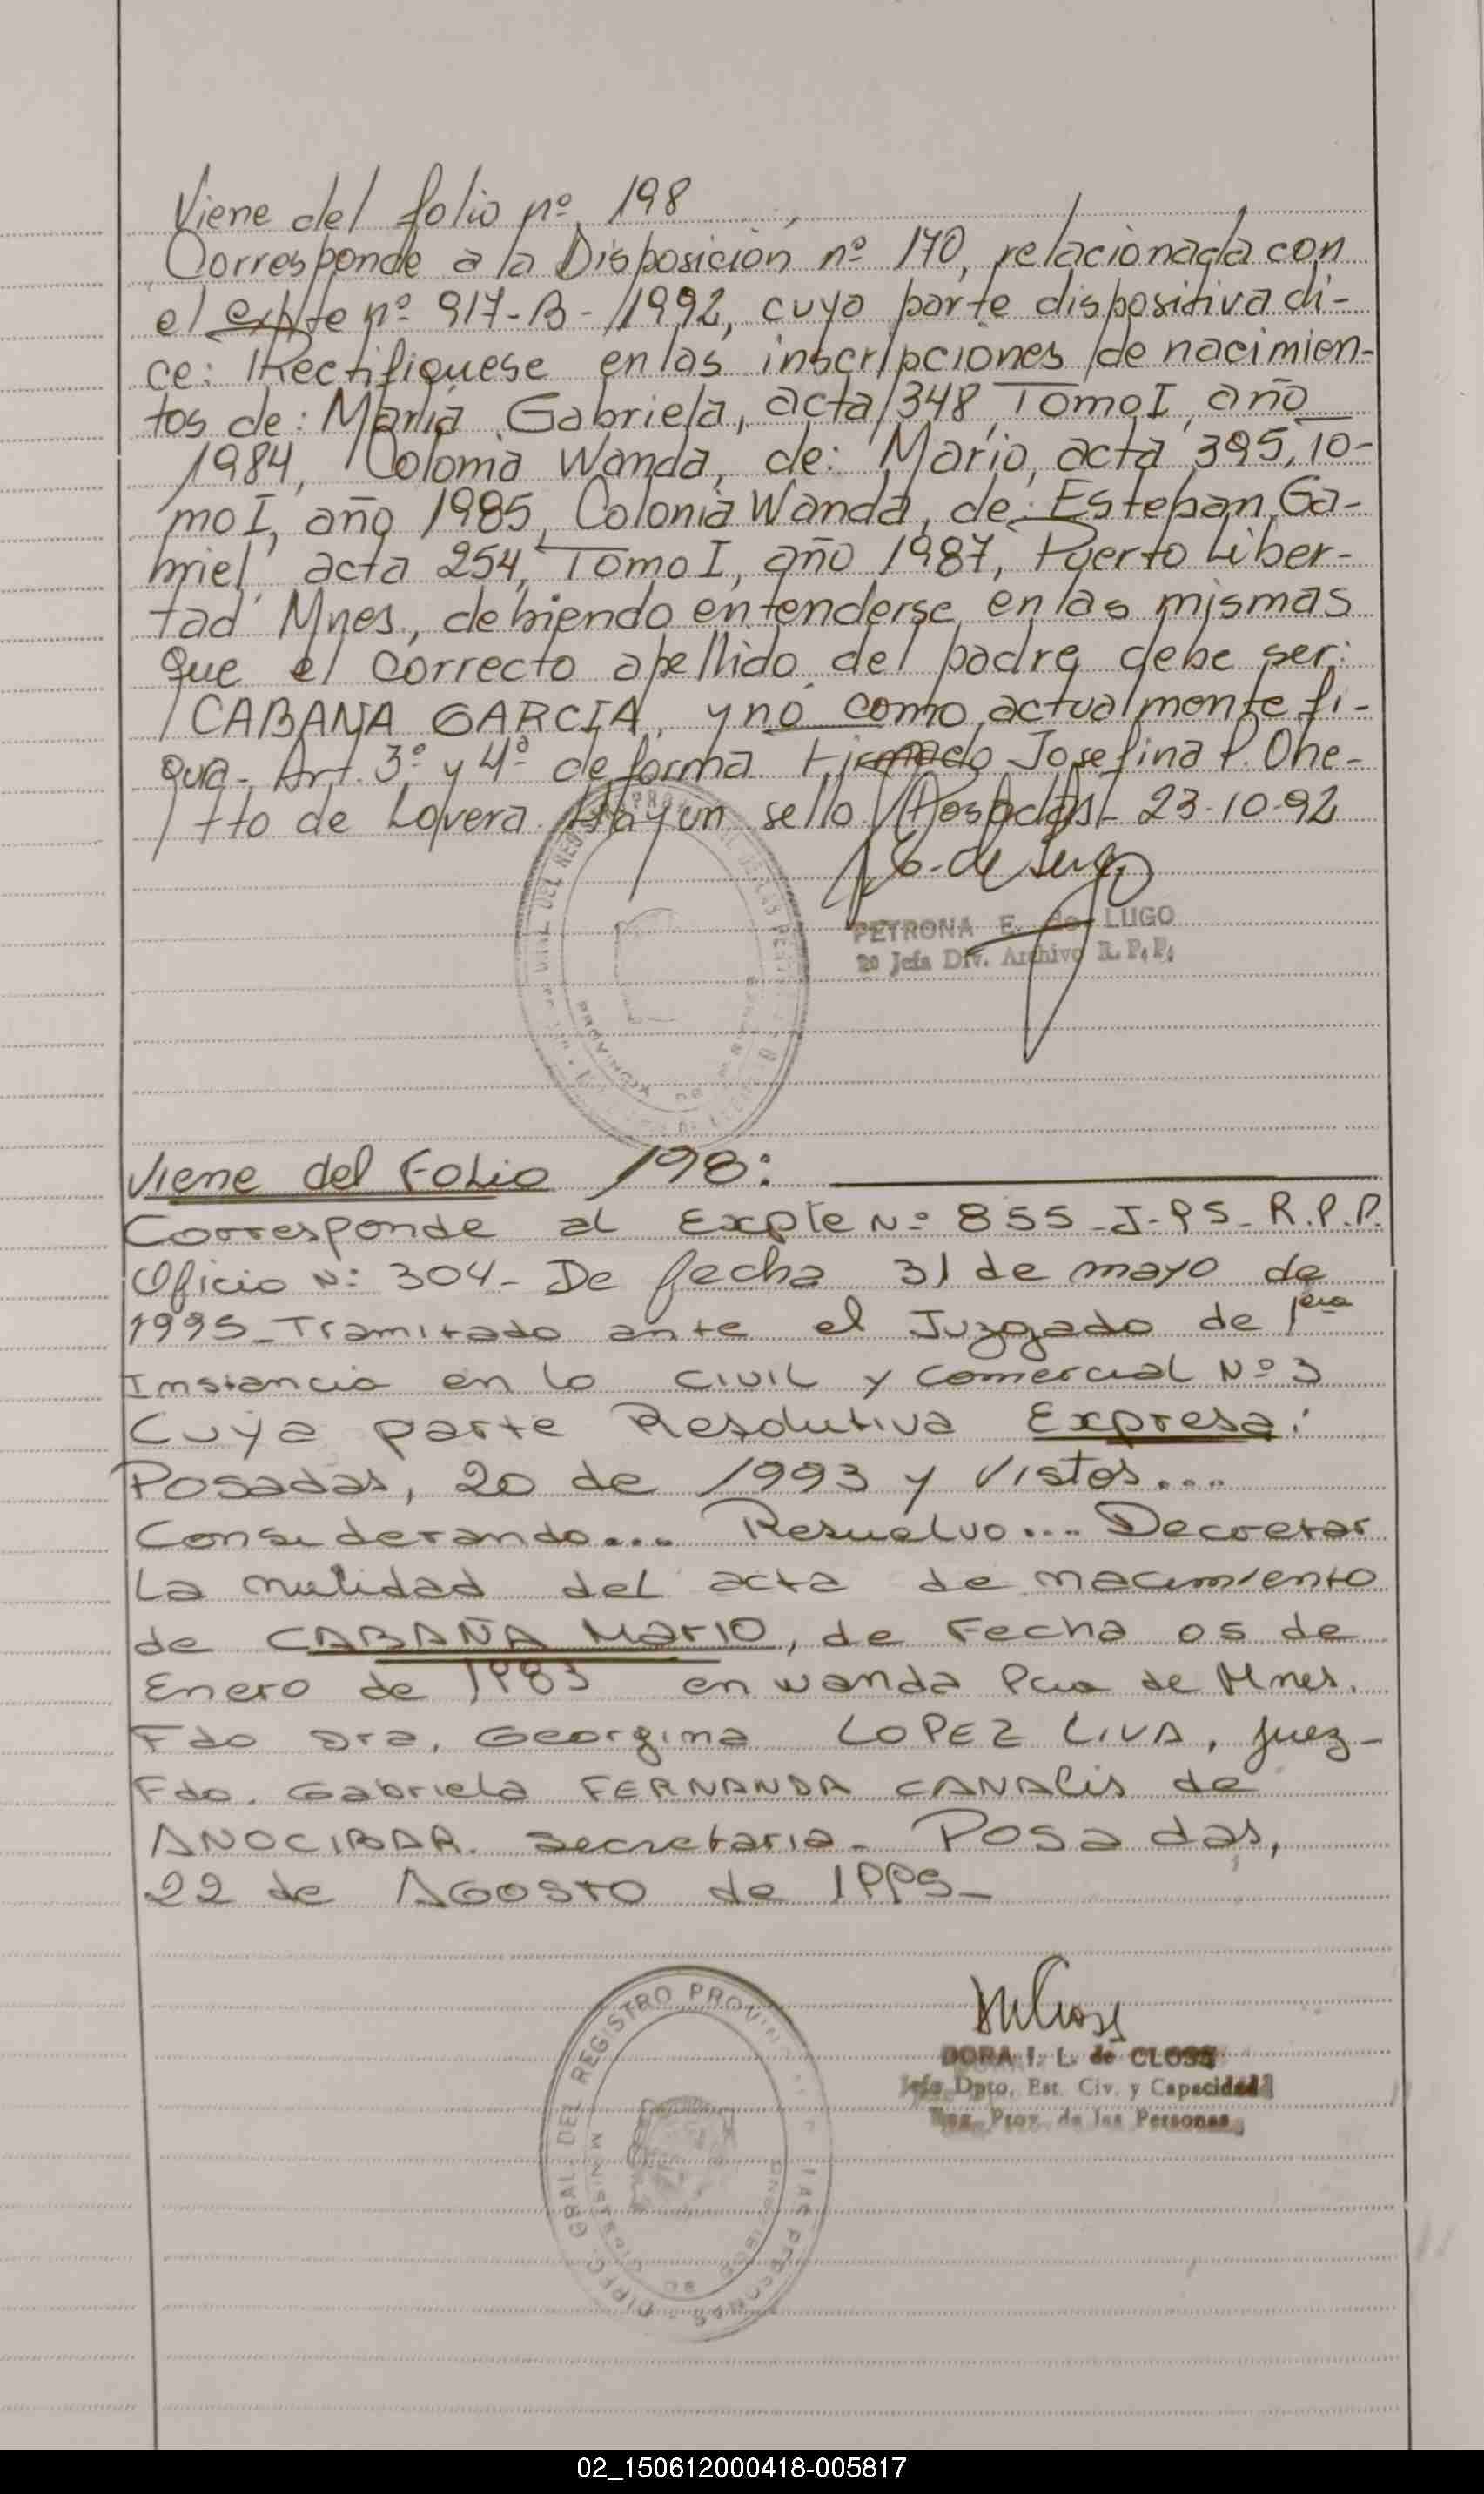 Viene del folio nº 198
Corresponde a la Disposición nº 170, relacionada con
el expte nº 917-B-/1992, cuya parte dispositiva di-
ce: Rectifiquese en las inscripciones de nacimien-
tos de: María Gabriela, acta 348, Tomo I, año
1984, Colonia Wanda, de: Mario, acta 395, To-
mo I, año 1985, Colonia Wanda, de: Esteban Ga-
briel, acta 254, Tomo I, año 1987, Puerto Liber-
tad Mnes., debiendo entenderse en las mismas
que el correcto apellido del padre debe ser:
CABAÑA GARCIA, y nó como actualmente fi-
gura. Art. 3º y 4º de forma. Firmado Josefina P. Ohe-
tto de Lovera. Hay un sello. Posadas- 23-10-92
PETRONA E. de LUGO
2º Jefa Div. Archivo R. P. P.
Viene del Folio 198:
Corresponde al Expte Nº 855-J-95-R.P.P.
Oficio Nº 304- De fecha 31 de mayo de
1995-Tramitado ante el Juzgado de 1era
Instancia en lo civil y comercial Nº 3
Cuya parte Resolutiva Expresa:
Posadas, 20 de 1993 y Vistos...
Considerando... Resuelvo... Decretar
La nulidad del acta de nacimiento
de CABAÑA Mario, de Fecha 05 de
Enero de 1983 en wanda Pcia de Mnes.
Fdo Dra. Georgina LOPEZ LIVA, juez-
Fdo. Gabriela FERNANDA CANALIS de
ANOCIBAR. Secretaria- Posadas,
22 de AGOSTO de 1995-
DIREC. GRAL. DEL REGISTRO PROVINCIAL DE LAS PERSONAS
DORA I. L. de CLOSS
Jefa Dpto. Est. Civ. y Capacidad
Reg. Prov. de las Personas
02_150612000418-005817